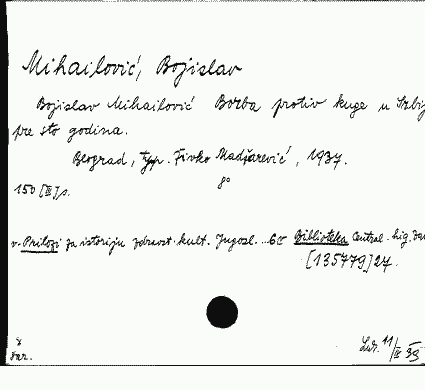 Mihailović, Bojislav
Bojislav Mihailović Borba protiv kuge u Srbij
pre sto godina.
Beograd, typ. Živko Madžarević, 1937.
8o
150 [III] p.
v. Prilozi za istoriju zdravst. kult. Jugosl. ... 60 Biblioteka Central. hig. zav
[135779] 27.
Lur. 11/IV 39